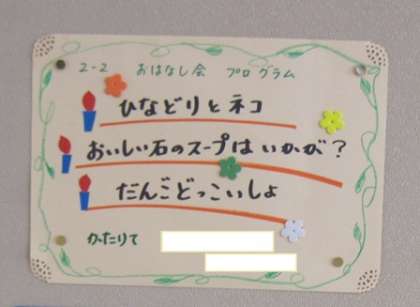 2-2 おはなし会 プログラム
ひなどりとネコ
おいしい石のスープはいかが？
だんごどっこいしょ
かたりて